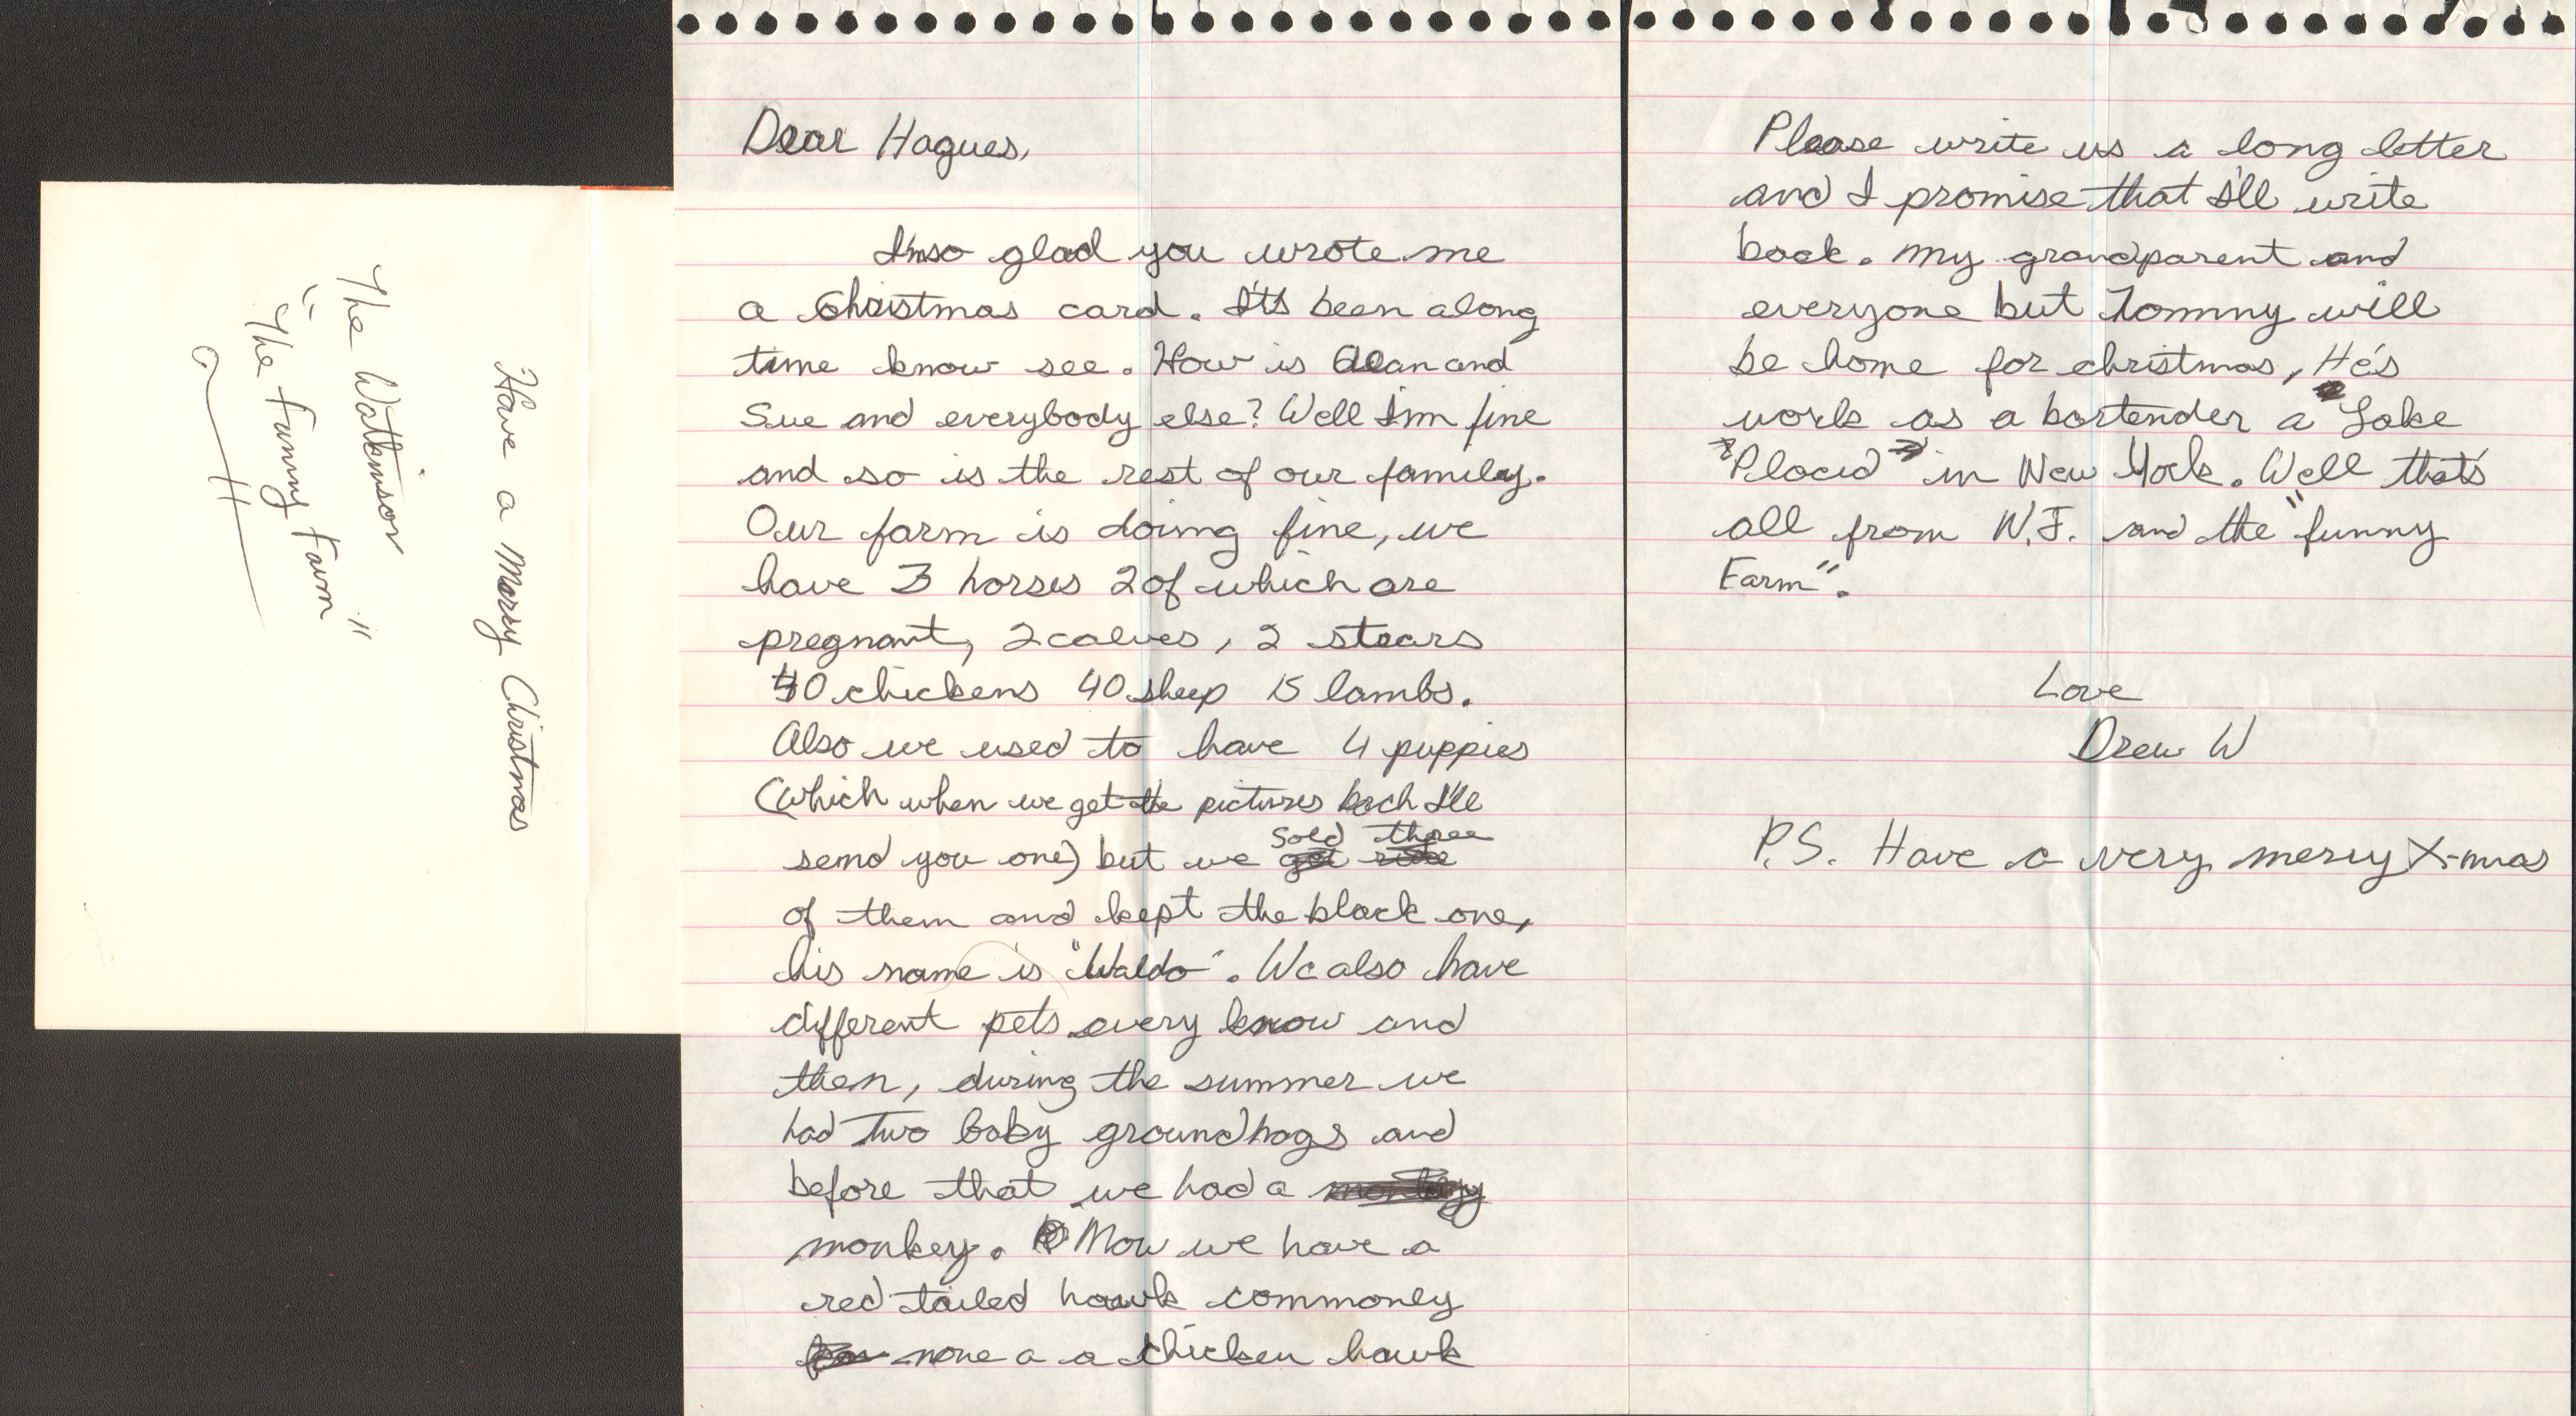 Have a Merry Christmas
The Watkinson
"The Funny Farm"
Dear Hagues,
I'm so glad you wrote me
a Christmas card. It's been along
time know see. How is Alan and
Sue and everybody else? Well I'm fine
and so is the rest of our family.
Our farm is doing fine, we
have 3 horses 2 of which are
pregnant, 2 calves, 2 stears
40 chickens 40 sheep 15 lambs.
Also we used to have 4 puppies
(which when we get the pictures back I'll
send you one) but we sold three
of them and kept the black one,
his name is "Waldo". We also have
different pets every know and
then, during the summer we
had two baby groundhogs and
before that we had a
monkey. Now we have a
red tailed hawk commonly
none a a chicken hawk
Please write us a long letter
and I promise that I'll write
back. My grandparent and
everyone but Tommy will
be home for christmas, He's
work as a bartender a Lake
Placid in New York. Well that's
all from N.J. and the "funny
Farm".
Love
Drew W
P.S. Have a very merry X-mas